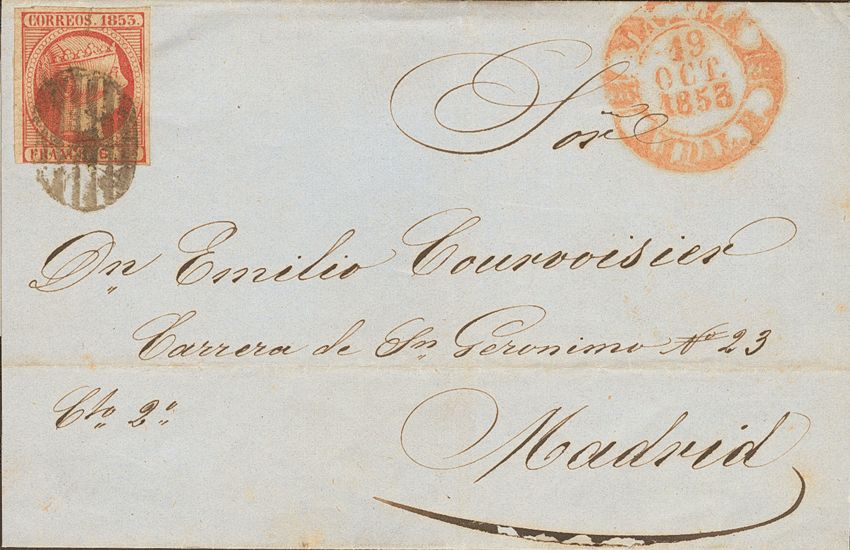 CORREOS. 1853.
FRANCO 6 C
19
OCT.
1853
Sor
Dn Emilio Courvoisier
Carrera de Sn Geronimo No 23
Cto 2o
Madrid